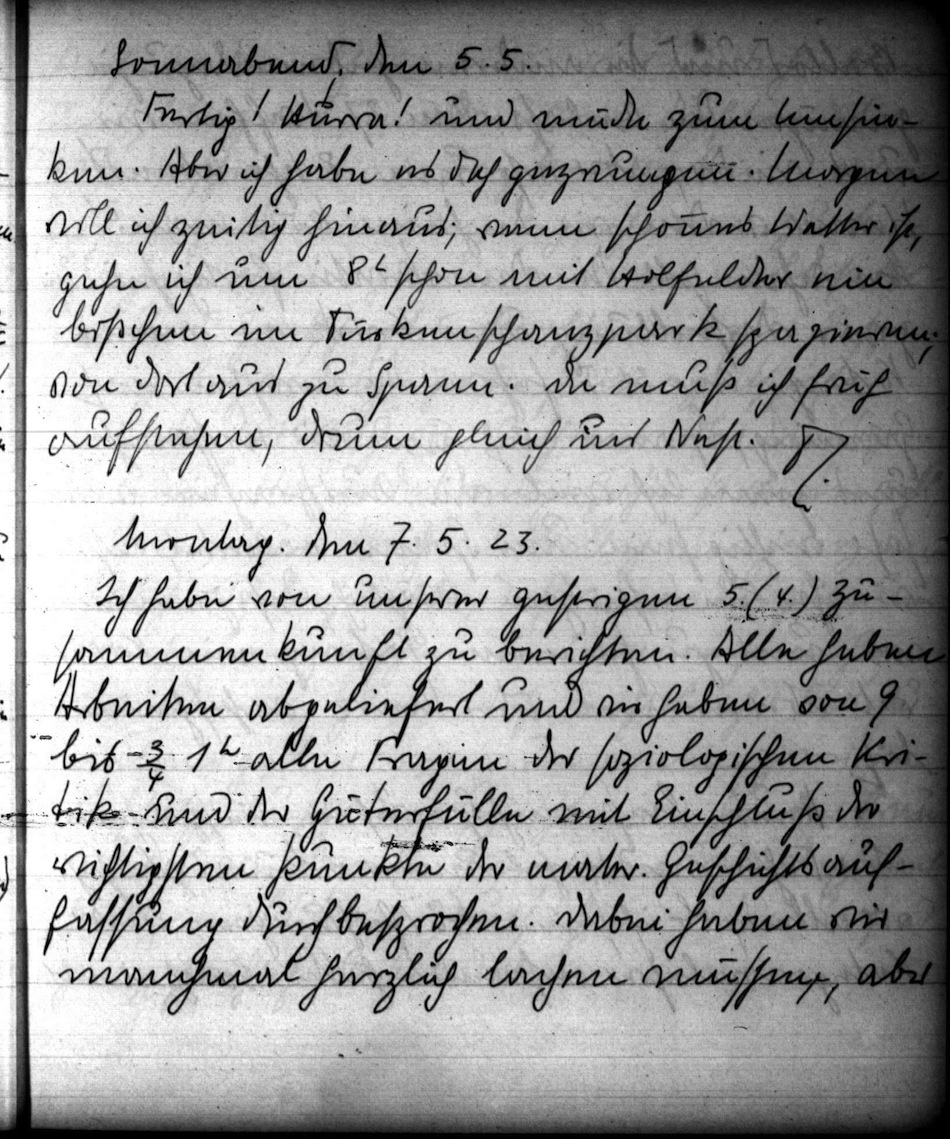 Sonnabend, den 5.5.
Fertig! Hurra! und müde zum Umsin-
ken. Aber ich habe es doch gezwungen. Morgen
will ich zeitig hinaus; wenn schönes Wetter ist,
gehe ich um 8h schon mit Holfelder ein
bißchen im Türkenschanzpark spazieren;
von dort aus zu Spann. Da muß ich früh
aufstehen, drum gleich ins Nest.
Montag. den 7. 5. 23.
Ich habe von unserer gestrigen 5.(4.) Zu-
sammenkunft zu berichten. Alle haben
Arbeiten abgeliefert und wir haben von 9
bis 3/4 1h alle Fragen der soziologischen Kri-
tik und der Güterfülle mit Einschluß der
wichtigsten Punkte der mater. Geschichtsauf-
fassung durchbesprochen. Dabei haben wir
manchmal herzlich lachen müssen, aber